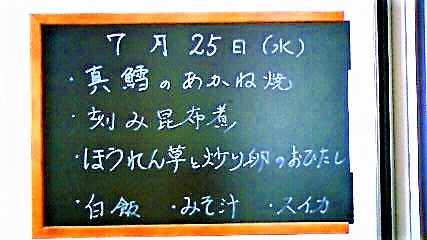 7月25日(水)
・真鱈のあかね焼
・刻み昆布煮
・ほうれん草と炒り卵のおひたし
・白飯 ・みそ汁 ・スイカ